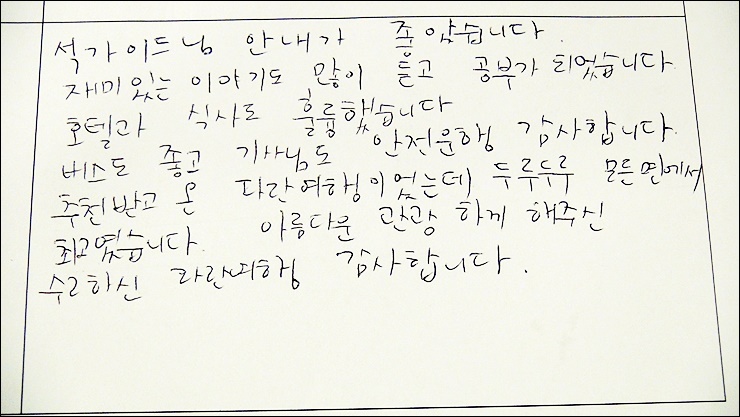 석가이드님 안내가 좋았습니다
재미있는 이야기도 많이 듣고 공부가 되었습니다
호텔과 식사도 훌륭했습니다
버스도 좋고 기사님도 안전운행 감사합니다.
추천받고 온 파란여행이었는데 두루두루 모든면에서
최고였습니다. 아름다운 관광 하게 해주신
수고하신 파란여행 감사합니다.